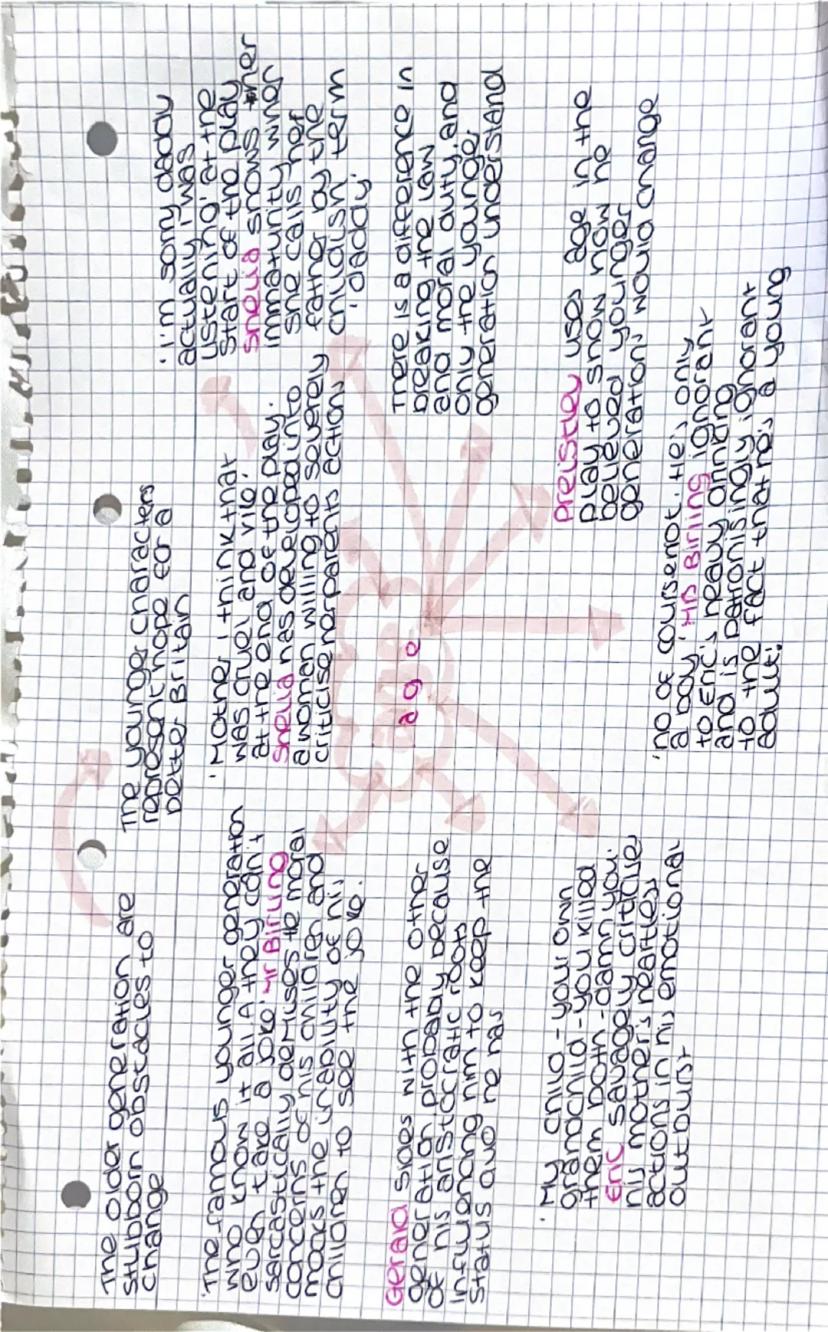 The older generation are
stubborn obstacles to
change
The younger characters
represent hope for a
better Britain
'I'm sorry daddy
actually I was
listening' at the
start of the play
Sheila shows her
immaturity when
she calls her
father by the
childish term
'daddy'
'The famous younger generation
who know it all. A they can't
even take a joke' Mr Birling
sarcastically demises the moral
concerns of his children and
mocks the inability of his
children to see the joke.
'Mother I think that
was cruel and vile.'
at the end of the play.
Sheila has developed into
a woman willing to severely
criticise her parents actions
age
There is a difference in
breaking the law
and moral duty, and
only the younger
generation understand
Gerald sides with the other
generation probably because
of his aristocratic roots
influencing him to keep the
status quo he has
'My child - your own
grandchild - you killed
them both - damn you.'
Eric savagely critique
his mother's heartless
actions in his emotional
outburst
Preistley uses age in the
play to show how he
believed younger
generations would change
'no of course not. He's only
a boy' Mrs Birling ignorant
to Eric's heavy drinking
and is patronisingly ignorant
to the fact that he's a young
adult.